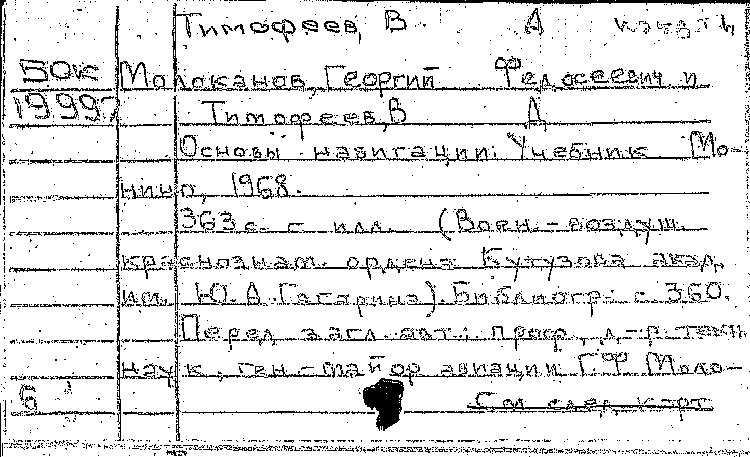 Тимофеев, В. А
БОК Молоканов, Георгий Федосеевич и
19997 Тимофеев, В А
Основы навигации. Учебник Мо-
нино, 1968.
363 с. с илл. (Воен.-воздуш.
краснознам. ордена Кутузова акад.
им. Ю. А. Гагарина). Библиогр.: с 360.
Перед загл. авт.: проф., д-р техн.
наук, ген-майор авиации Г.Ф Моло-
б См след. карт